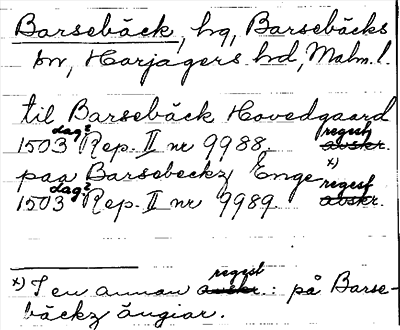 Barsebäck, hg, Barsebäcks
sn, Harjagers hd, Malm. l.
til Barsebäck Hovedgaard
1503 dag? Rep. II nr 9988. regest avskr.
paa Barsebeckz Enge x)
1503 dag? Rep. II nr 9989. regest avskr.
x) I en annan regest avskr.: på Barse-
bäckz ängiar.